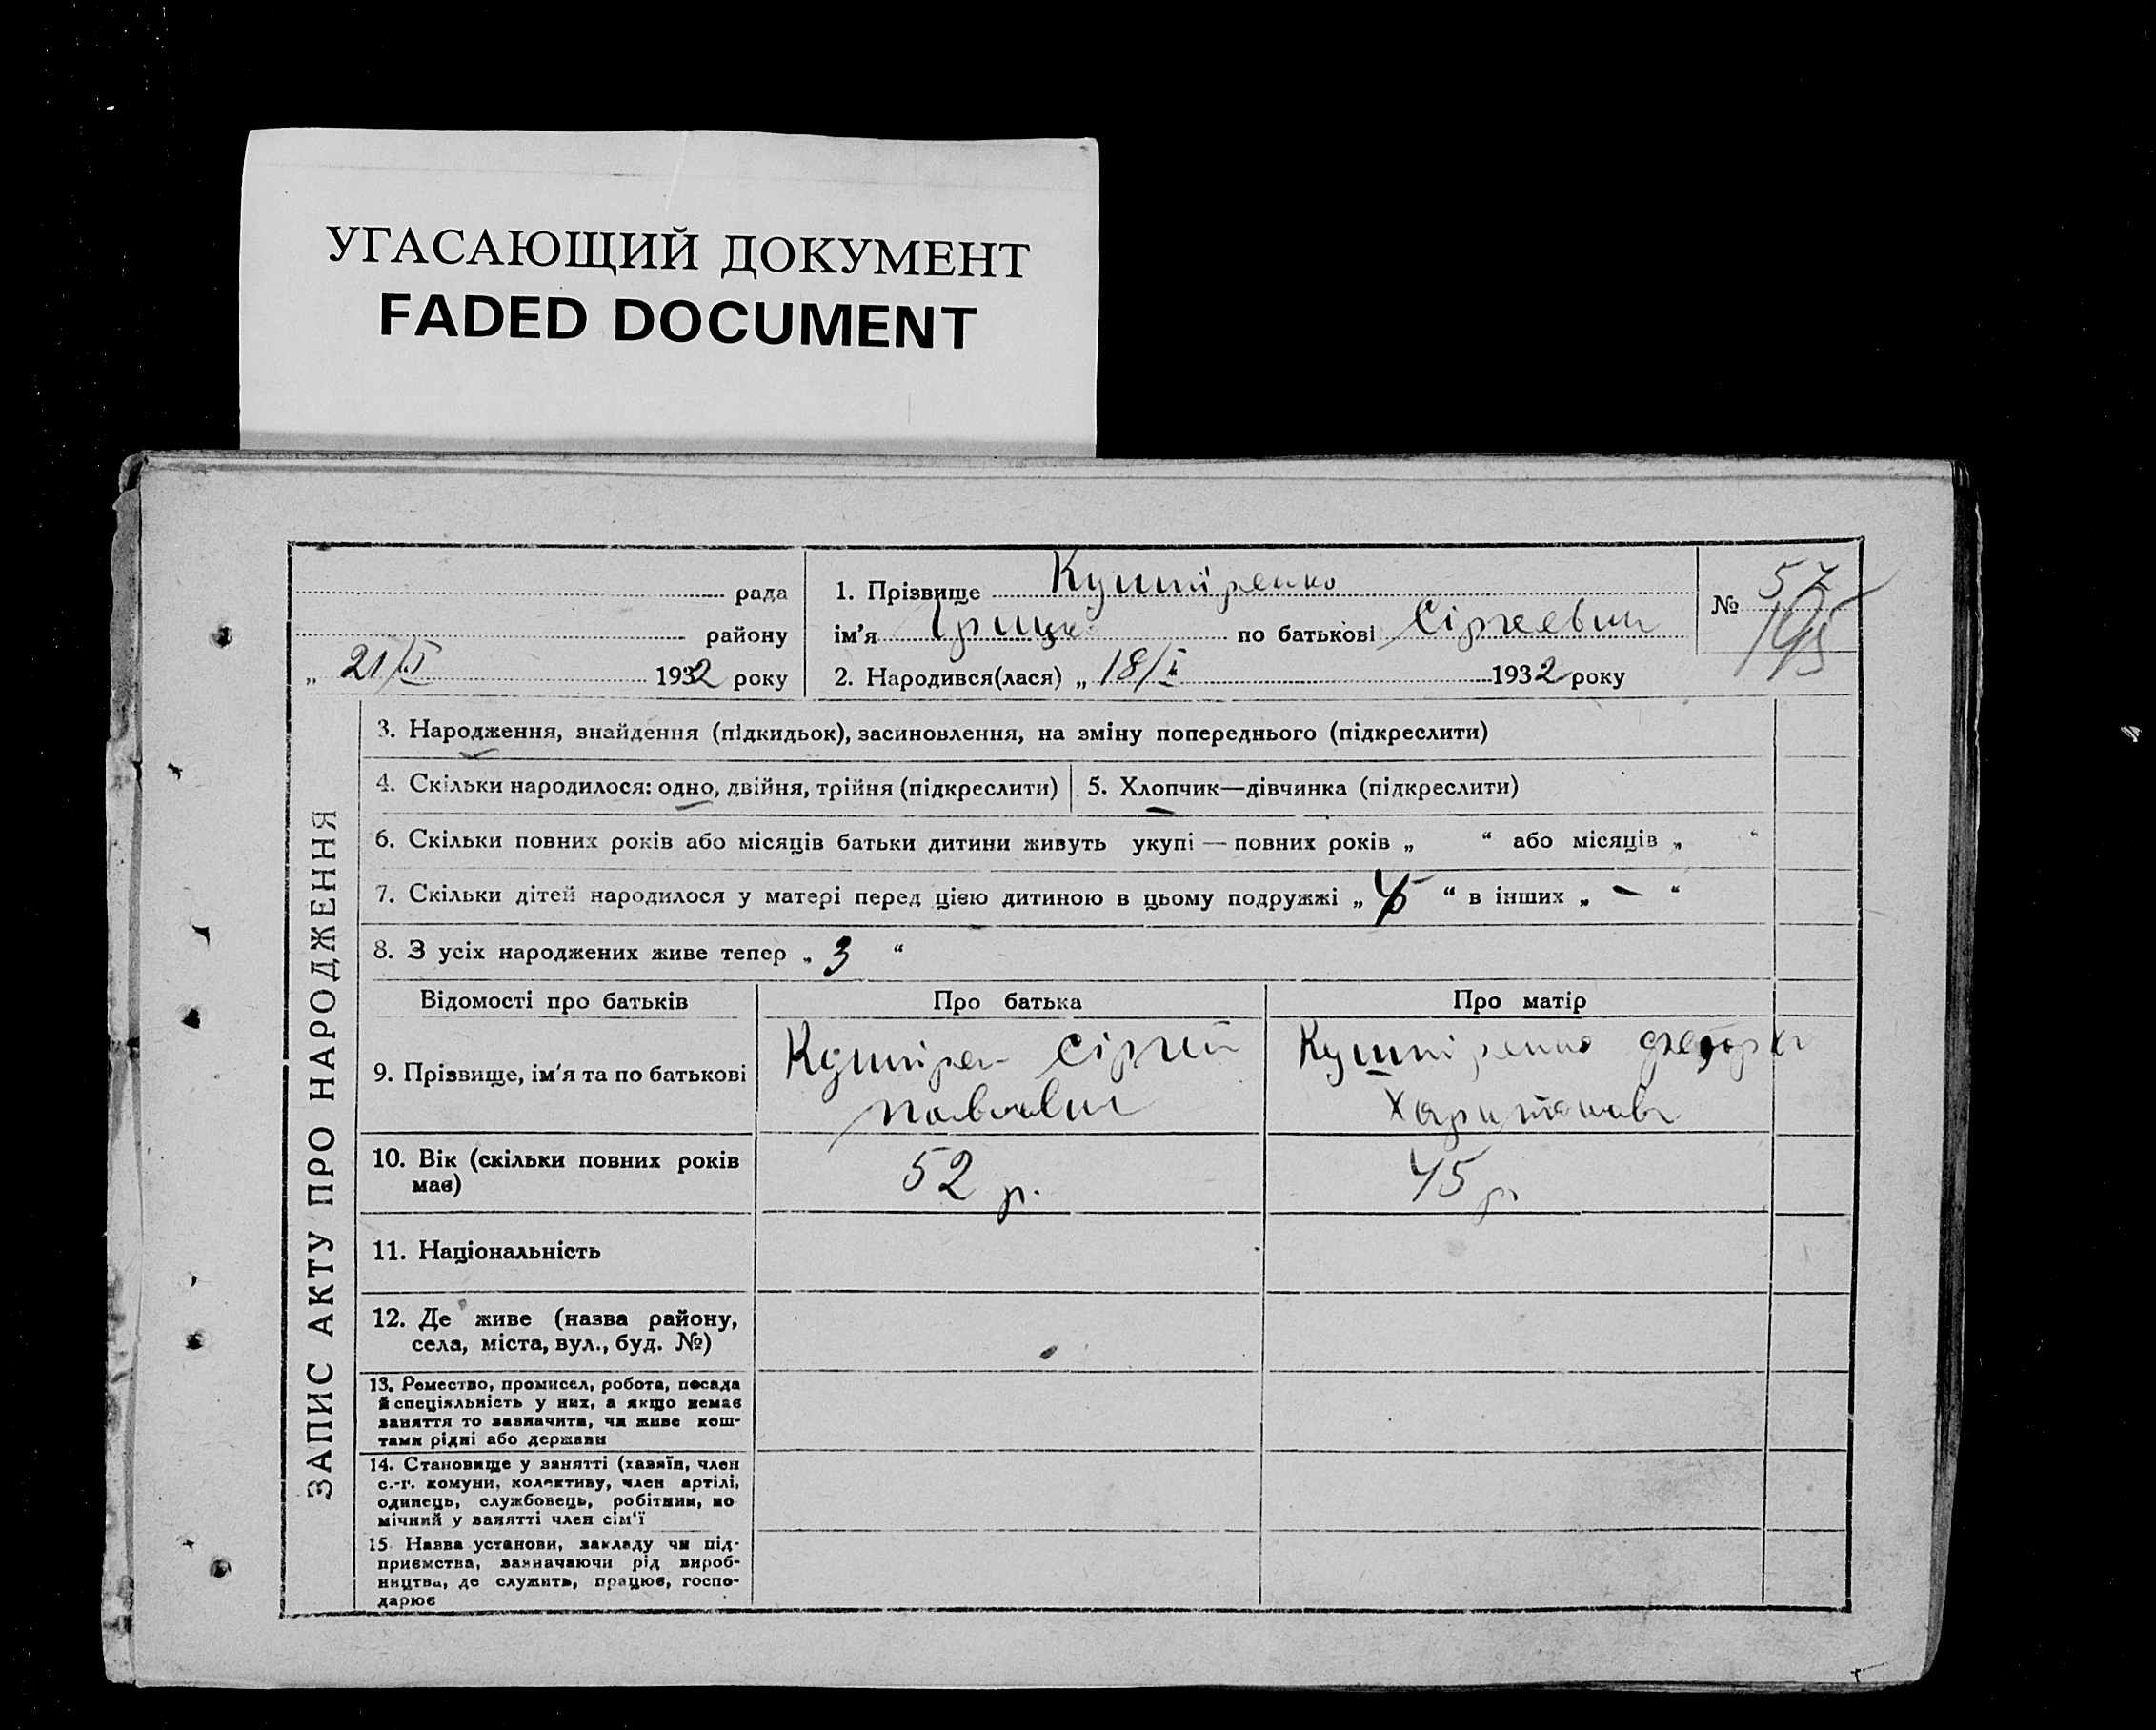 УГАСАЮЩИЙ ДОКУМЕНТ
FADED DOCUMENT
рада
району
„ 21/I 1932 року
1. Прізвище Кушніренко
ім’я Грицко по батькові Сіргеевич
2. Народився(лася) „ 18/I 1932 року
№ 57
ЗАПИС АКТУ ПРО НАРОДЖЕННЯ
3. Народження, знайдення (підкидьок), засиновлення, на зміну попереднього (підкреслити)
4. Скільки народилося: одно, двійня, трійня (підкреслити)
5. Хлопчик—дівчинка (підкреслити)
6. Скільки повних років або місяців батьки дитини живуть укупі — повних років „ “ або місяців „ “
7. Скільки дітей народилося у матері перед цією дитиною в цьому подружжі „ “ в інших „ – “
8. З усіх народжених живе тепер „ 3 “
Відомості про батьків
Про батька
Про матір
9. Прізвище, ім’я та по батькові
Кушнірен Сіргій
Павлович
Кушніренко
Харитонов
10. Вік (скільки повних років
має)
52 р.
45 р.
11. Національність
12. Де живе (назва району,
села, міста, вул., буд. №)
13. Ремество, промисел, робота, посада
й спеціяльність у них, а якщо немає
заняття то зазначити, чи живе кош-
тами рідні або держави
14. Становище у занятті (хазяїн, член
с.-г. комуни, колективу, член артілі,
одинець, службовець, робітник, по
мічний у занятті член сім’ї
15 Назва установи, закладу чи під-
приємства, зазначаючи рід вироб-
ництва, де служить, працює, госпо-
дарює